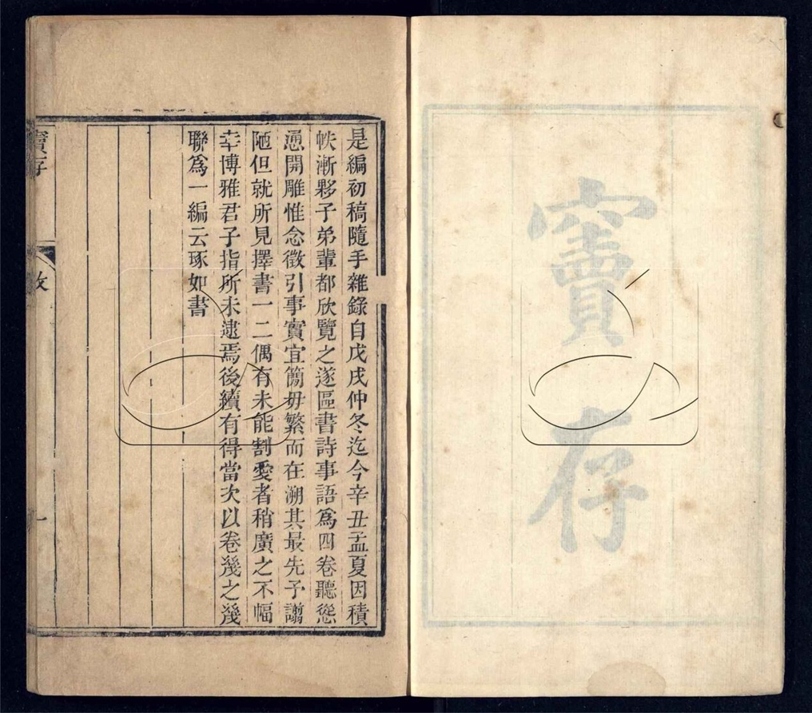 竇
存
是編初稿隨手雜錄自戊戌仲冬迄今辛丑孟夏因積
帙漸夥子弟輩都欣覽之遂區書詩事語爲四卷聽慫
慂開雕惟念徵引事實宜簡毋繁而在溯其最先予謭
陋但就所見擇書一二偶有未能割愛者稍廣之不幅
幸博雅君子指所未逮焉後續有得當次以卷幾之幾
聯爲一編云琢如書
竇存
一